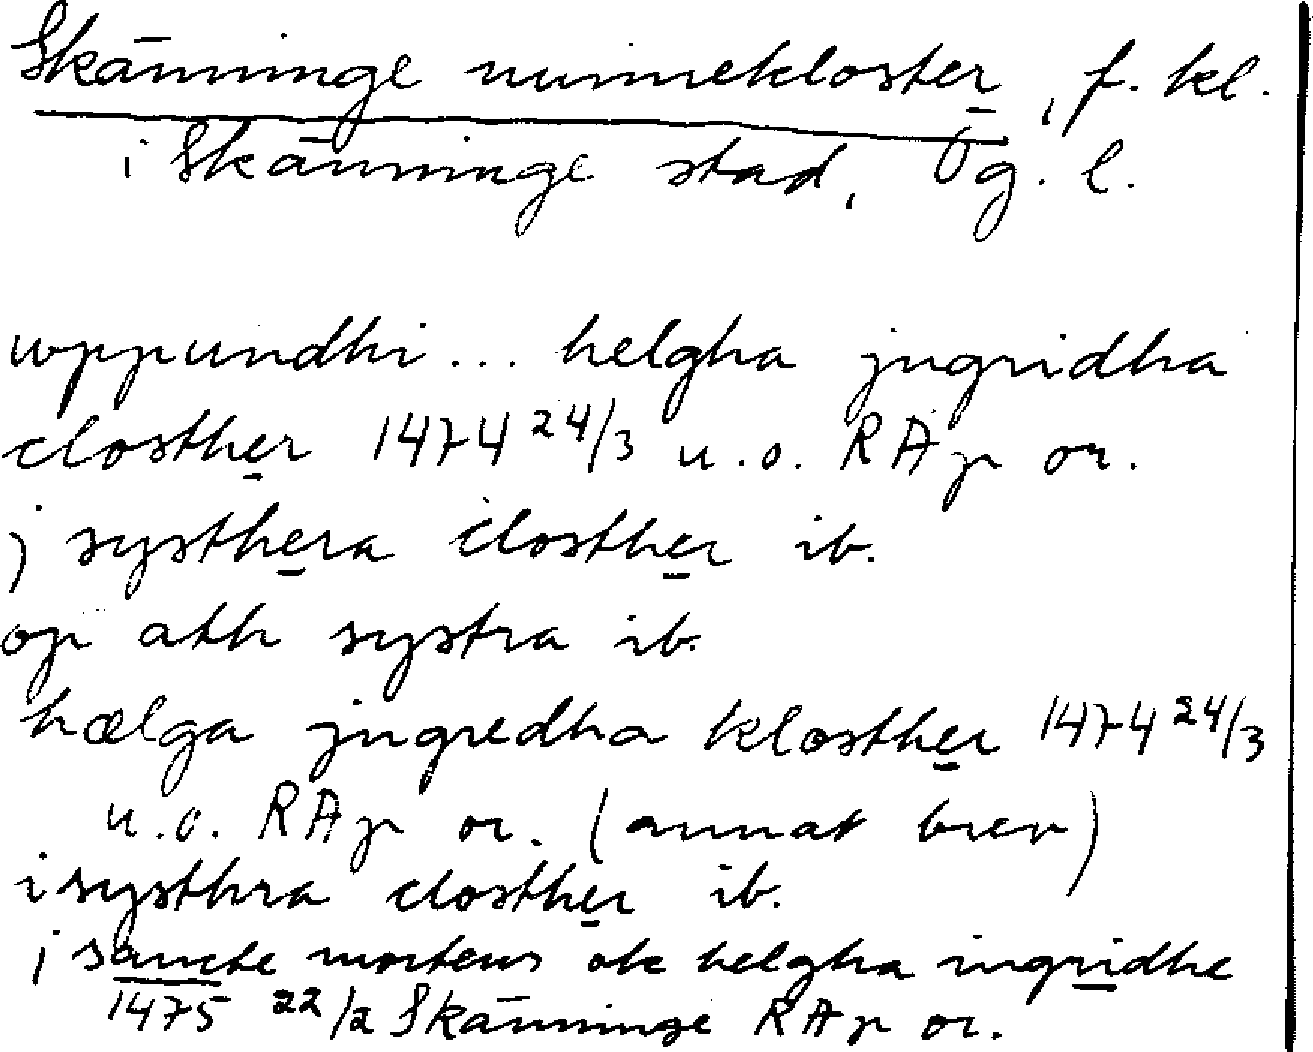 Skänninge nunnekloster, f. kl.
i Skänninge stad, Ög. l.
wppundhi... helgha jngridha
closther 1474 24/3 u.o. RAp or.
j systhera closther ib.
op ath systra ib.
hælga jngredha klosther 1474 24/3
u.o. RAp or. (annat brev)
i systhra closther ib.
j sancte mortens ok helgha ingridhe
1475 22/2 Skänninge RAp or.